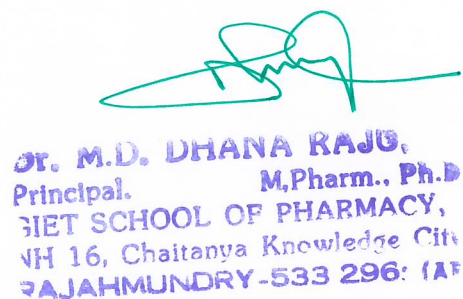 Dr. M.D. DHANA RAJU,
Principal. M,Pharm., Ph.D
GIET SCHOOL OF PHARMACY,
NH 16, Chaitanya Knowledge City
RAJAHMUNDRY-533 296: (AP